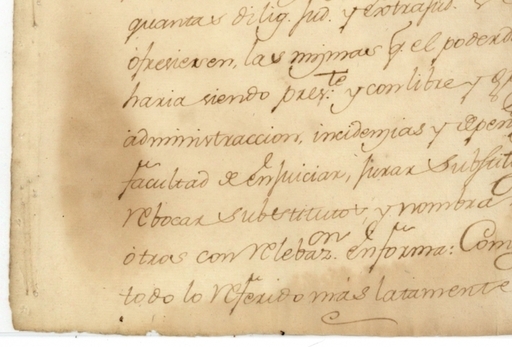 quantas dilig. Jud. y extrajud. q e
ofrecieren, las mismas q el poderd
haria siendo pres.te y con libre y g
administraccion, incidencias y depen
facultad de enjuiciar, jurar substit
rebocar substitutos, y nombra
otros con relebaz.on en forma: Com
todo lo referido más latamente